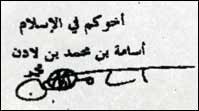 أخوكم في الإسلام
أسامة بن محمد بن لادن